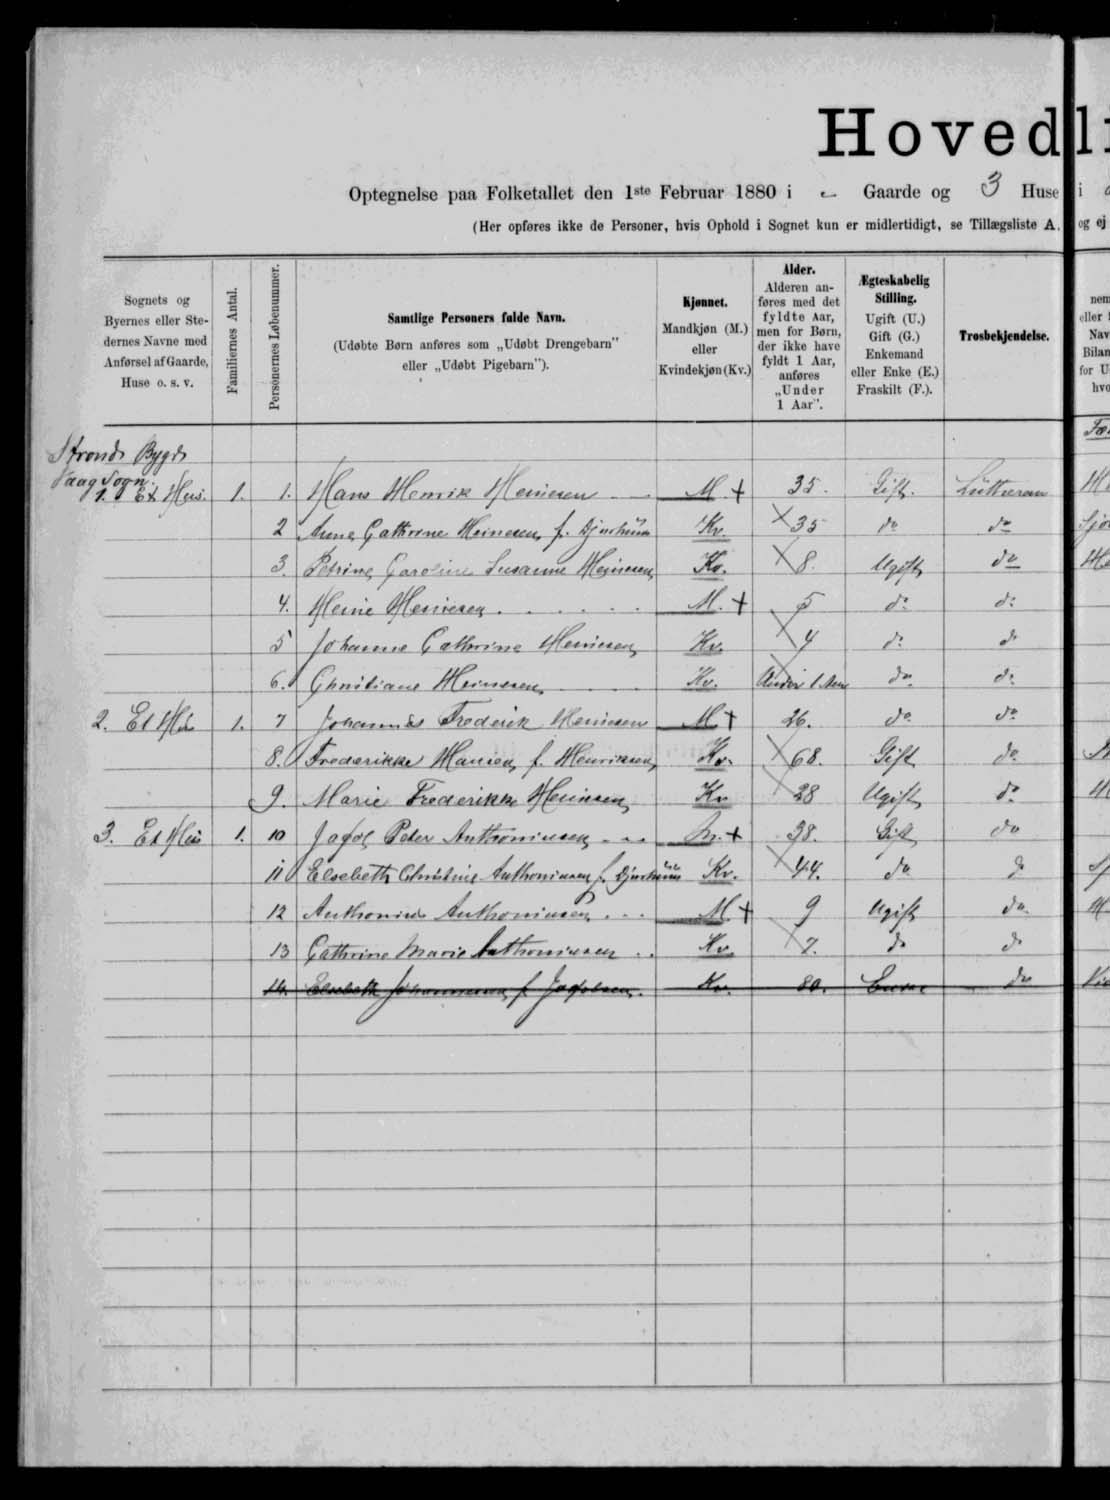 Hovedli
Optegnelse paa Folketallet den 1ste Februar 1880 i - Gaarde og 3 Huse i
(Her opføres ikke de Personer, hvis Ophold i Sognet kun er midlertidigt, se Tillægsliste A. og ej
Sognets og Byernes eller Stedernes Navne med Anførsel af Gaarde, Huse o. s. v.
Familiernes Antal.
Personernes Løbenummer.
Samtlige Personers fulde Navn.
(Udøbte Børn anføres som „Udøbt Drengebarn" eller „Udøbt Pigebarn").
Kjønnet.
Mandkjøn (M.) eller Kvindekjøn (Kv.)
Alder.
Alderen anføres med det fyldte Aar, men for Børn, der ikke have fyldt 1 Aar, anføres „Under 1 Aar".
Ægteskabelig Stilling.
Ugift (U.) Gift (G.) Enkemand eller Enke (E.) Fraskilt (F.).
Trosbekjendelse.
Bygd
Vaag Sogn.
1. Et Hus. 1. 1. Hans Henrik Heinesen M. + 35. Gift. Lutheran
2 Anne Cathrine Heinesen f. Djurhuus Kv. × 35 do do
3. Petrine Caroline Susanne Heinesen Kv. × 8. Ugift do
4. Heine Heinesen M. + 5 do do
5 Johanne Cathrine Heinesen Kv. × 4 do do
6. Christiane Heinesen Kv. Under 1 Aar do do
2. Et Hus 1. 7 Johannes Frederik Heinesen M + 26. do do
8. Frederikke Hansen f. Henriksen Kv. × 68. Gift do
9. Marie Frederikke Heinesen Kv × 28 Ugift do
3. Et Hus 1. 10 Jagob Peter Anthoniusen M. + 38. Gift do
11 Elsebeth Christine Anthoniusen f. Djurhuus Kv. × 44. do do
12 Anthonius Anthoniusen M + 9 Ugift do
13 Cathrine Marie Anthoniusen Kv. × 7. do do
14. Elsebeth Johannesen f. Jogvolsen. Kv. 80. Enke do